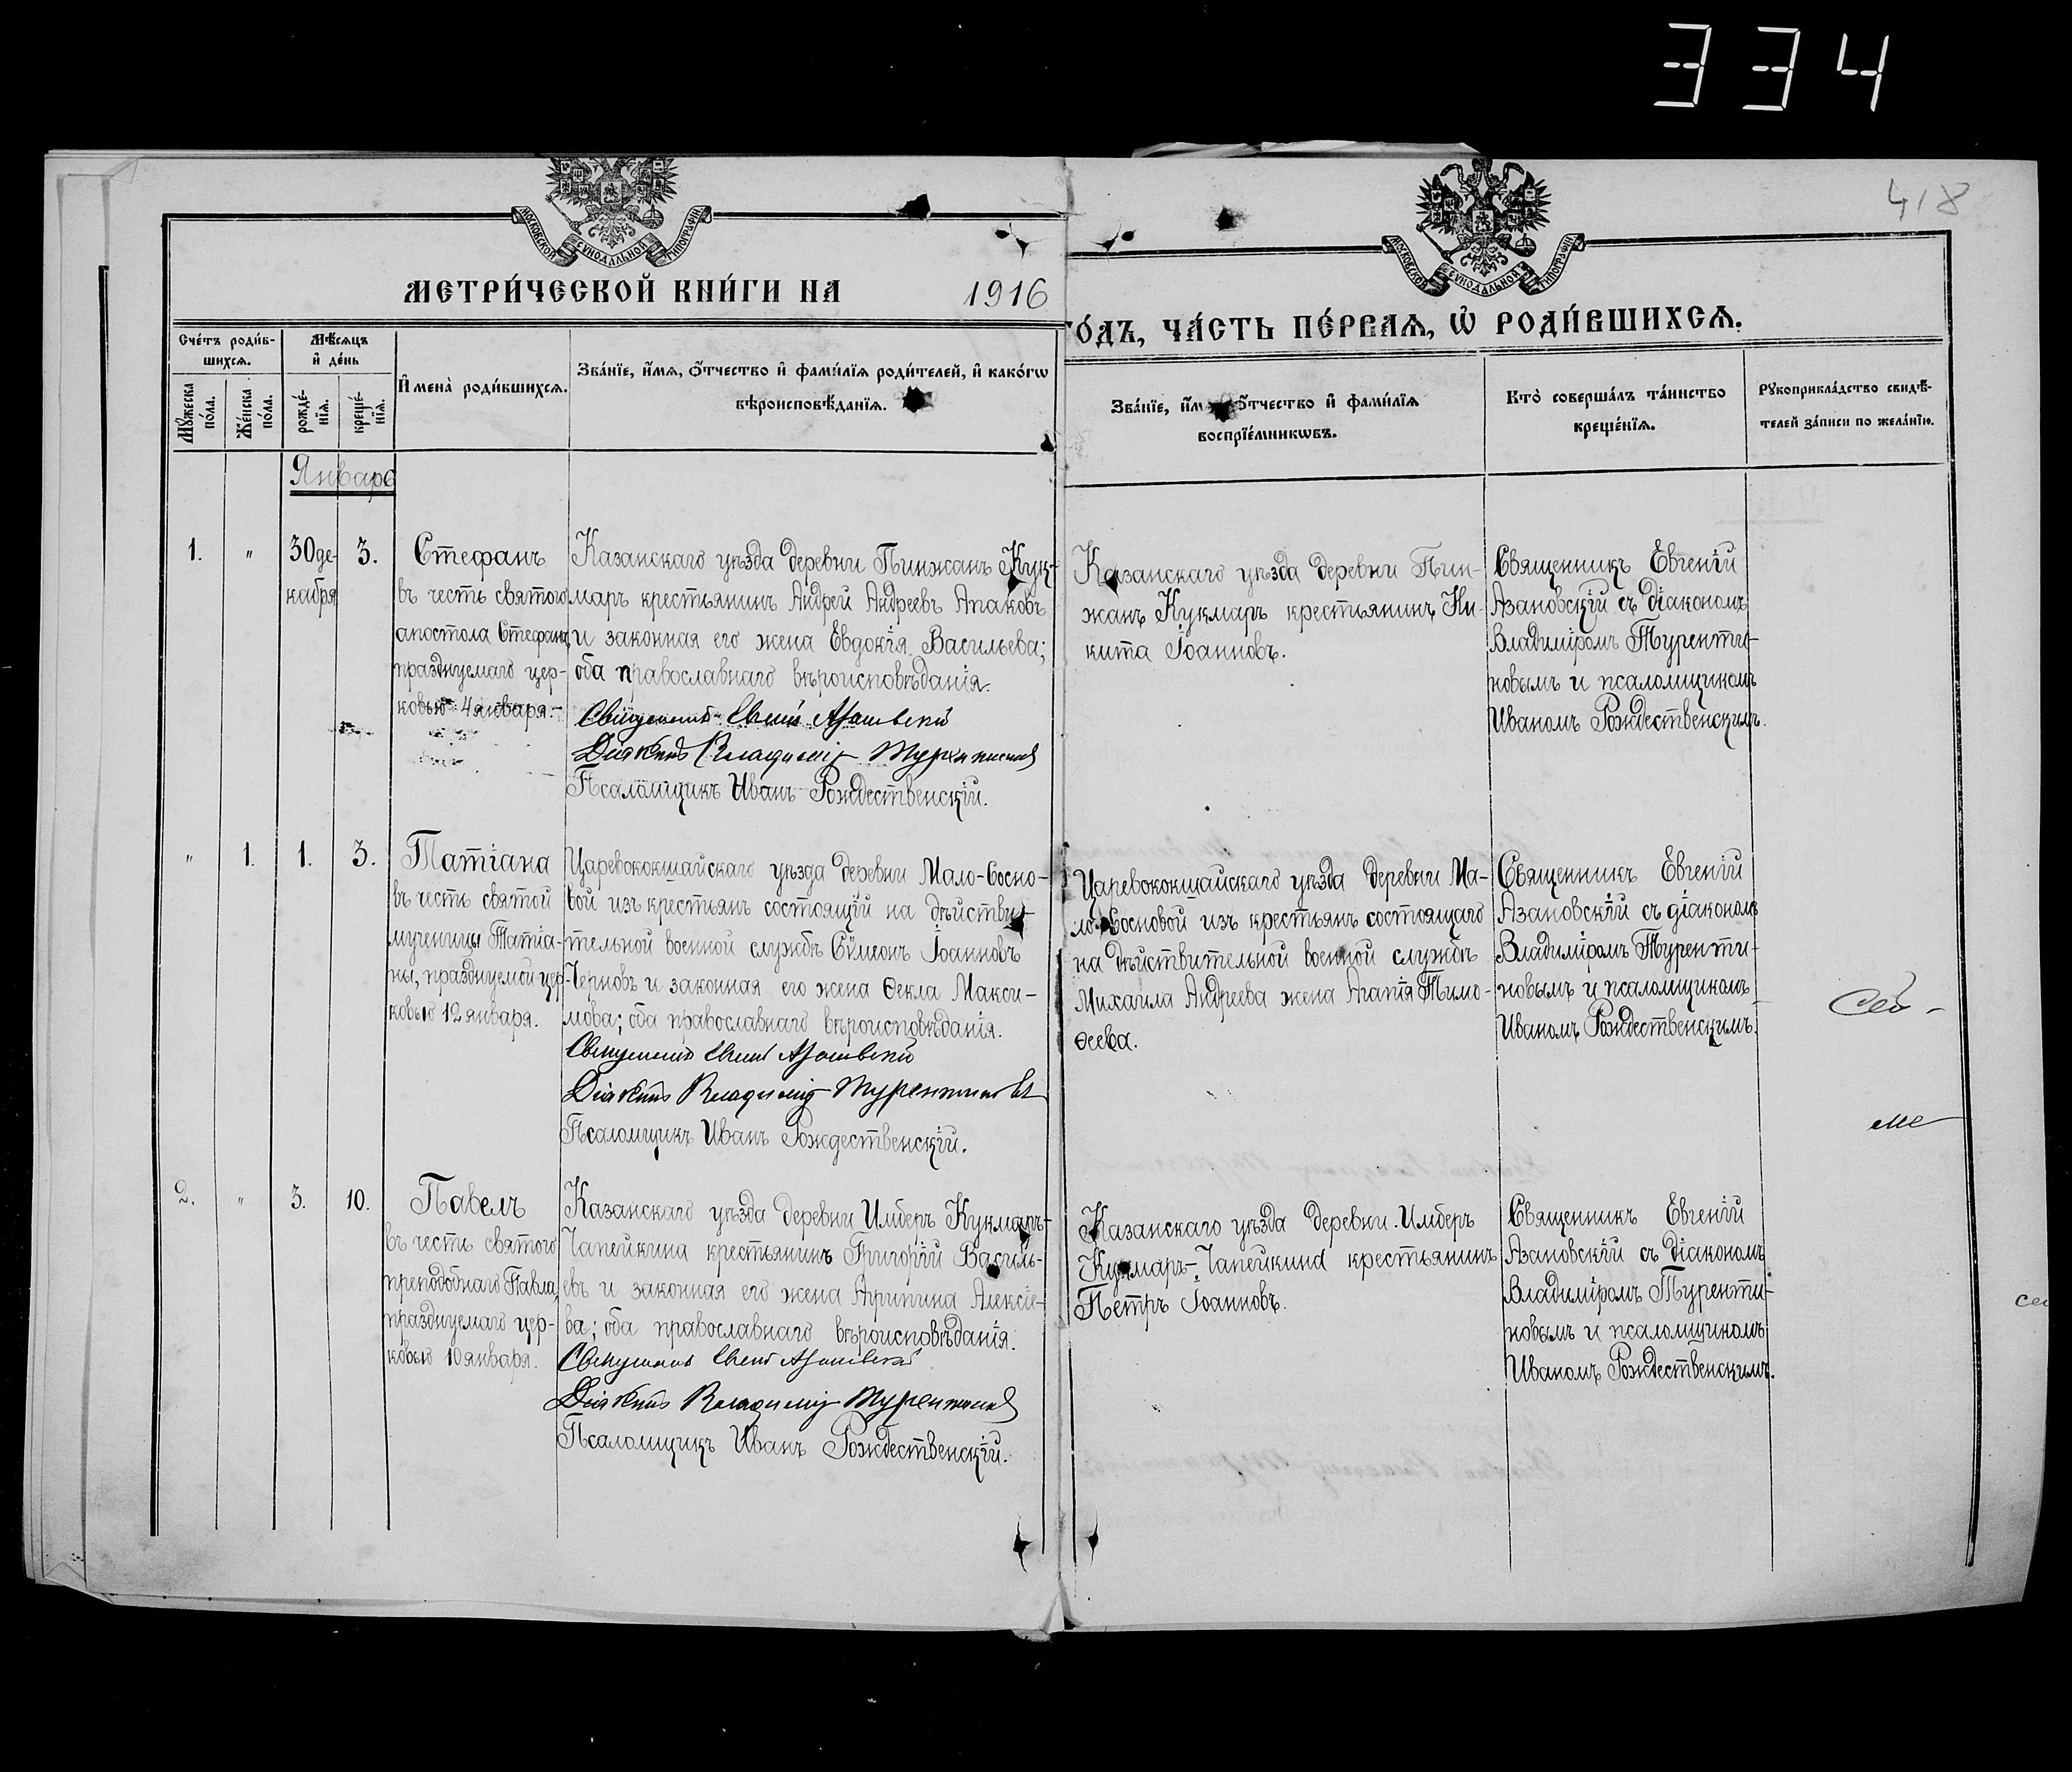 334
418
МОСКОВСКОЙ СѴНОДАЛЬНОЙ ТИПОГРАФІИ
МЕТРИ́ЧЕСКОЙ КНИ́ГИ НА 1916
МОСКОВСКОЙ СѴНОДАЛЬНОЙ ТИПОГРАФІИ
ГО́ДЪ, ЧА́СТЬ ПЕ́РВАѦ, Ѡ҆ РОДИ́ВШИХСѦ.
Сче́тъ роди́в-
шихсѧ.
Мꙋ́жеска
по́ла.
Же́нска
по́ла.
Мѣ́сѧцъ
и҆ де́нь
рожде́-
нїѧ.
креще́-
нїѧ.
И҆мена̀ роди́вшихсѧ.
Зва́нїе, и҆́мѧ, ѻ҆́тчество и҆ фами́лїѧ роди́телей, и҆ како́гѡ
вѣроисповѣ́данїѧ.
Зва́нїе, ѻ҆́тчество и҆ фами́лїѧ
воспрїе́мникѡвъ.
Кто̀ соверша́лъ та́инство
креще́нїѧ.
Рꙋкоприкла́дство свидѣ́-
телей за́писи по жела́нїю.
Январь
1.
"
30 де-
кабря
3.
Стефанъ
въ честь святого
апостола Стефана,
празднуемаго цер-
ковью 4 января.-
Казанскаго уѣзда деревни Пинжанъ Кук-
маръ крестьянинъ Андрей Андреевъ Апаковъ
и законная его жена Евдокія Васильева;
оба православнаго вѣроисповѣданія.
Священникъ Евгеній Азановскій
Діаконъ Владиміръ Турентиновъ
Псаломщикъ Иванъ Рождественскій.
Казанскаго уѣзда деревни Пин-
жанъ Кукмаръ крестьянинъ Ни-
кита Іоанновъ.
Священникъ Евгеній
Азановскій съ діакономъ
Владиміромъ Туренти-
новымъ и псаломщикомъ
Иваномъ Рождественскимъ.
"
1.
1.
3.
Татіана
въ честь святой
мученицы Татіа-
ны, празднуемой цер-
ковью 12 января.
Царевококшайскаго уѣзда деревни Мало-Сосно-
вой изъ крестьянъ состоящій на дѣйстви-
тельной военной службѣ Сѵмеонъ Іоанновъ
Черновъ и законная его жена Ѳекла Макси-
мова; оба православнаго вѣроисповѣданія.
Священникъ Евгеній Азановскій
Діаконъ Владиміръ Турентиновъ
Псаломщикъ Иванъ Рождественскій.
Царевококшайскаго уѣзда деревни Ма-
ло-Сосновой изъ крестьянъ состоящаго
на дѣйствительной военной службѣ
Михаила Андреева жена Агапія Тимо-
ѳеева.
Священникъ Евгеній
Азановскій съ діакономъ
Владиміромъ Туренти-
новымъ и псаломщикомъ
Иваномъ Рождественскимъ.
2.
"
3.
10.
Павелъ
въ честь святого
преподобнаго Павла,
празднуемаго цер-
ковью 10 января.
Казанскаго уѣзда деревни Имберъ Кукмаръ-
Чапейкина крестьянинъ Григорій Василь-
евъ и законная его жена Агрипина Алексіе-
ва; оба православнаго вѣроисповѣданія.
Священникъ Евгеній Азановскій
Діаконъ Владиміръ Турентиновъ
Псаломщикъ Иванъ Рождественскій.
Казанскаго уѣзда деревни Имберъ
Кукмаръ-Чапейкина крестьянинъ
Петръ Іоанновъ.
Священникъ Евгеній
Азановскій съ діакономъ
Владиміромъ Туренти-
новымъ и псаломщикомъ
Иваномъ Рождественскимъ.